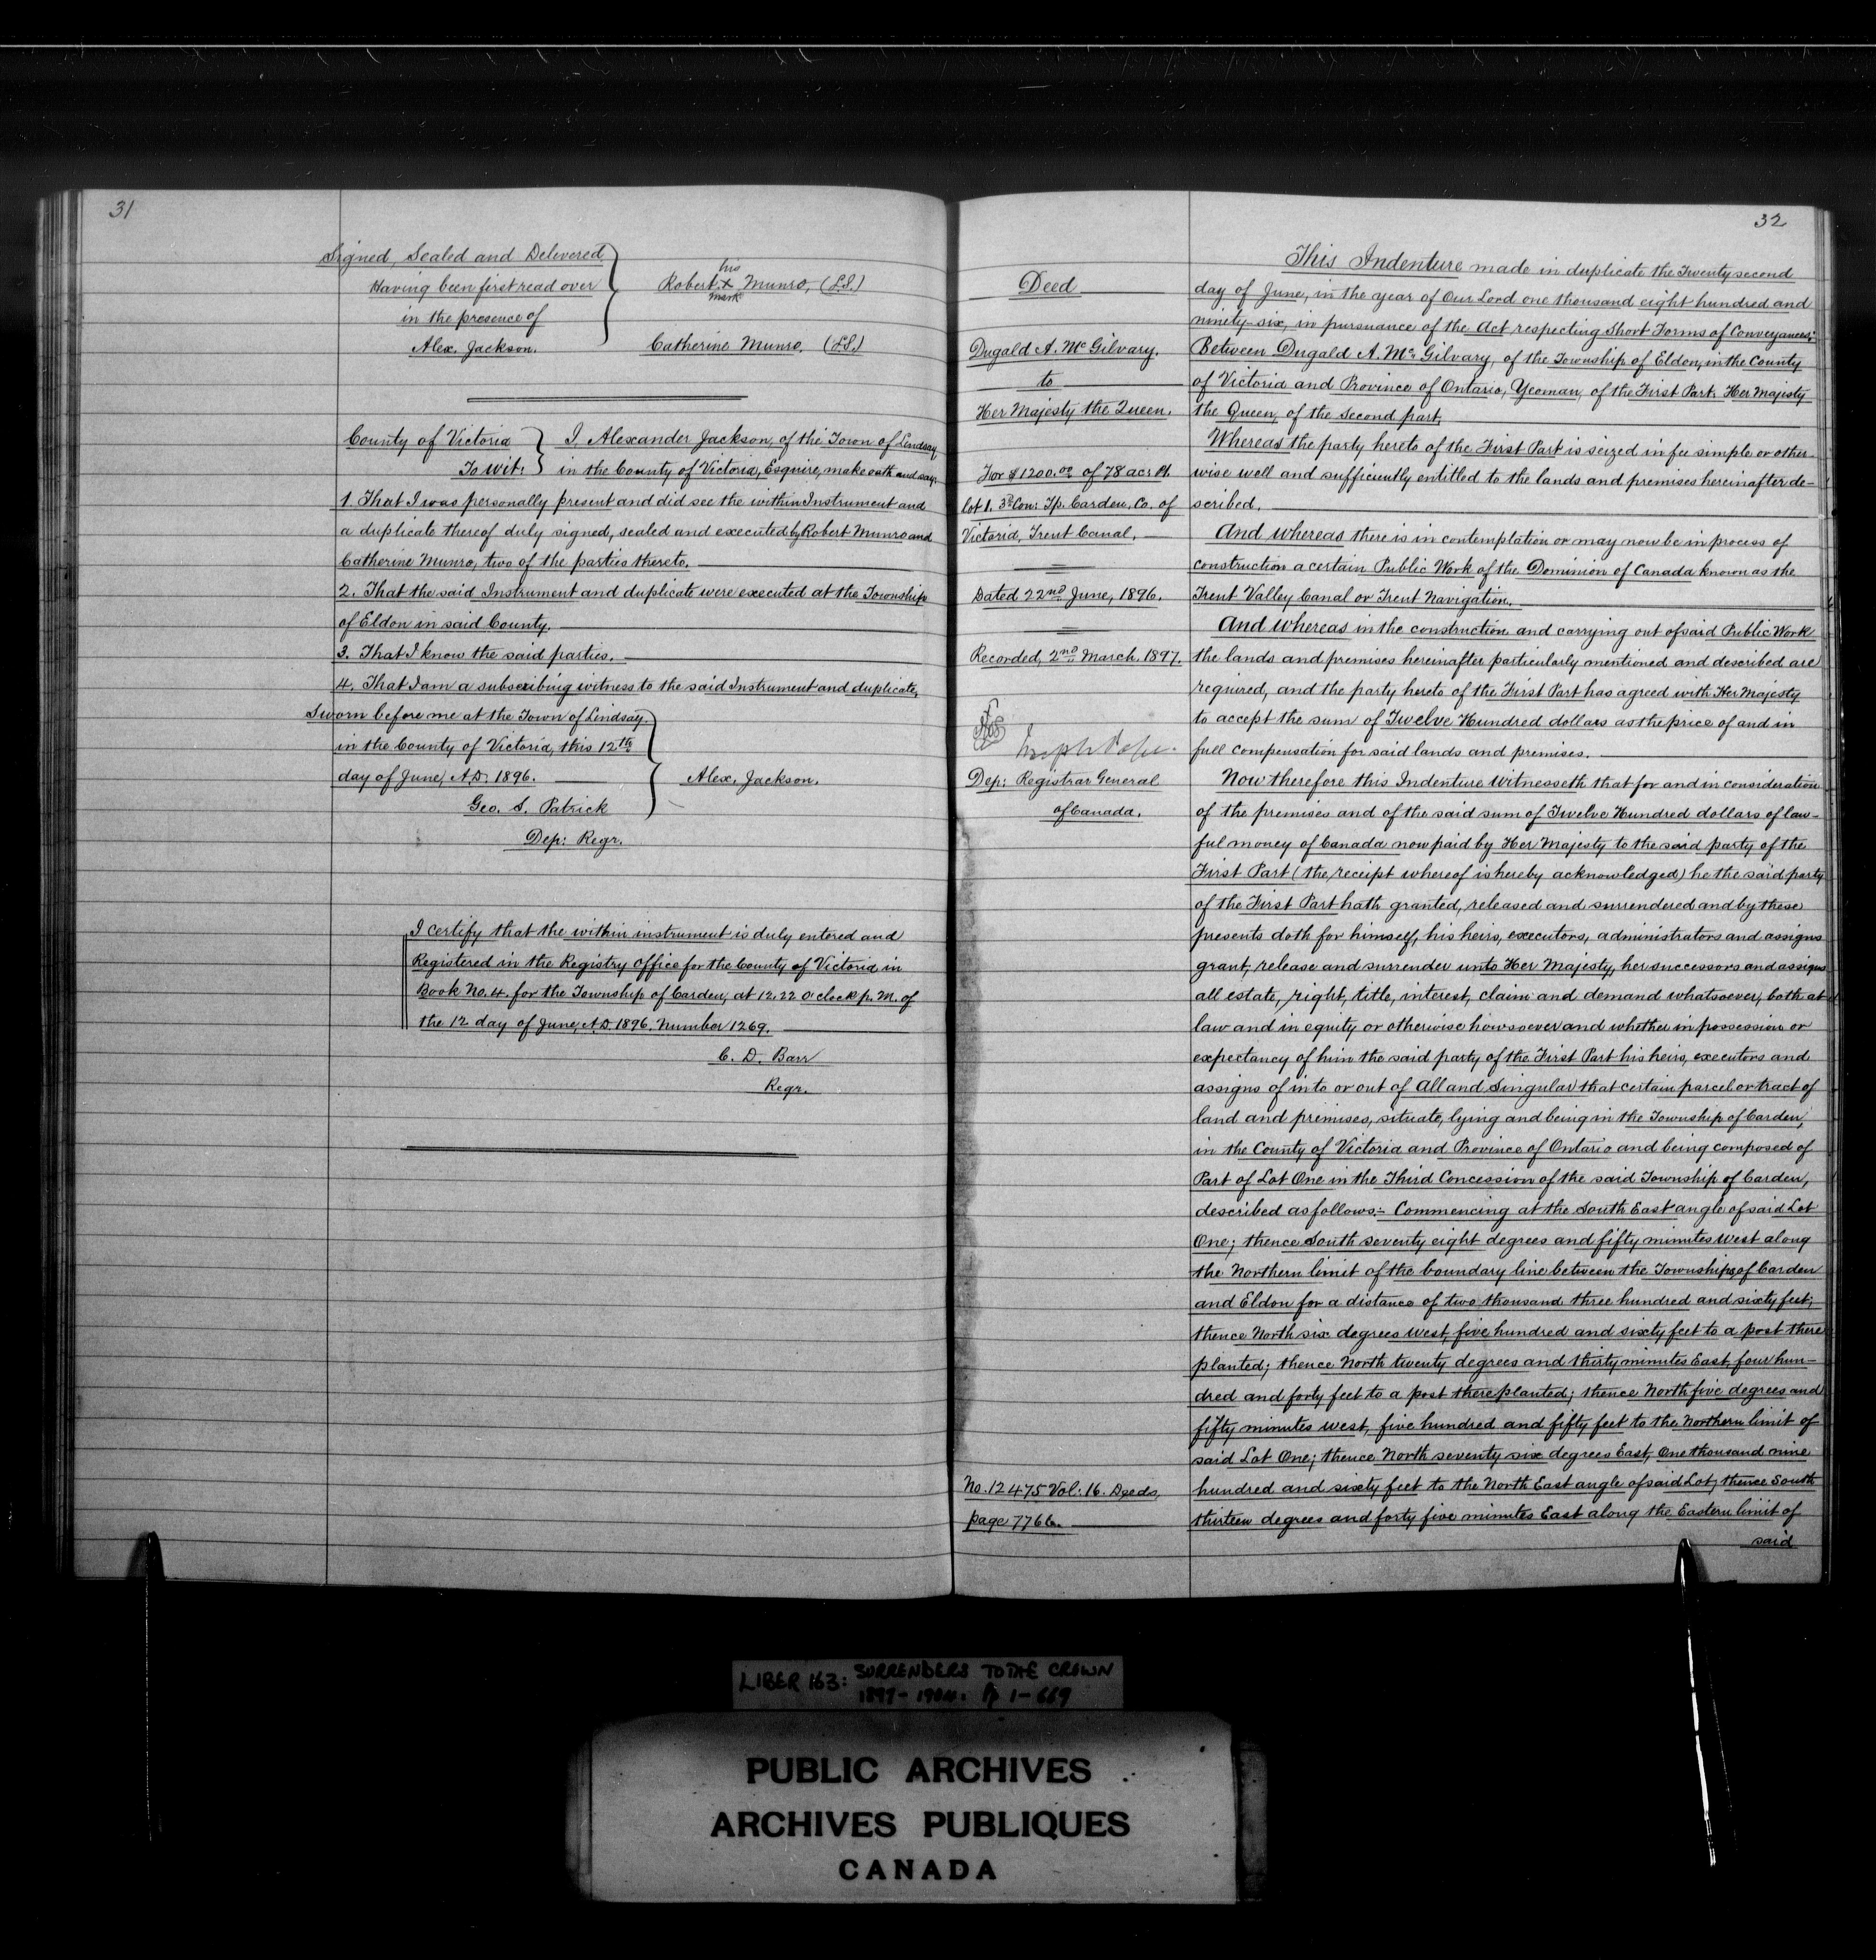 31
Signed, Sealed and Delivered
Having been first read over
in the presence of
Alex. Jackson.
his
Robert x Munro, (L.S.)
mark
Catherine Munro. (L.S.)
County of Victoria
To wit:
I, Alexander Jackson, of the Town of Lindsay,
in the County of Victoria, Esquire, make oath and say:
1. That I was personally present and did see the within Instrument and
a duplicate thereof duly signed, sealed and executed by Robert Munro and
Catherine Munro, two of the parties thereto.
2. That the said Instrument and duplicate were executed at the Township
of Eldon in said County.
3. That I know the said parties.
4. That I am a subscribing witness to the said Instrument and duplicate,
Sworn before me at the Town of Lindsay.
in the County of Victoria, this 12th
day of June, A.D. 1896.
Geo. S. Patrick
Dep: Regr.
Alex. Jackson.
I certify that the within instrument is duly entered and
Registered in the Registry Office for the County of Victoria in
Book No. 4. for the Township of Carden, at 12.22 o'clock p. M. of
the 12 day of June, A.D. 1896. Number 1269.
C. D. Barr
Regr.
32
Deed
Dugald A. McGilvary.
to
Her Majesty the Queen.
For $1200.00 of 78 acs Pt.
lot 1. 3d Con: Tp. Carden. Co. of
Victoria, Trent Canal.
Dated 22nd June, 1896.
Recorded, 2nd March, 1897.
Joseph Pope.
Dep: Registrar General
of Canada.
No. 12475 Vol: 16. Deeds,
page 7766.
This Indenture made in duplicate the Twenty second
day of June, in the year of Our Lord one thousand eight hundred and
ninety-six, in pursuance of the Act respecting Short Forms of Conveyances;
Between Dugald A. McGilvary, of the Township of Eldon, in the County
of Victoria and Province of Ontario, Yeoman, of the First Part. Her Majesty
the Queen, of the Second part,
Whereas the party hereto of the First Part is seized in fee simple or other-
wise well and sufficiently entitled to the lands and premises hereinafter de-
scribed.
And whereas there is in contemplation or may now be in process of
construction a certain Public Work of the Dominion of Canada known as the
Trent Valley Canal or Trent Navigation.
And whereas in the construction and carrying out of said Public Work
the lands and premises hereinafter particularly mentioned and described are
required, and the party hereto of the First Part has agreed with Her Majesty
to accept the sum of Twelve Hundred dollars as the price of and in
full compensation for said lands and premises.
Now therefore this Indenture Witnesseth that for and in consideration
of the premises and of the said sum of Twelve Hundred dollars of law-
ful money of Canada now paid by Her Majesty to the said party of the
First Part (the receipt whereof is hereby acknowledged) he the said party
of the First Part hath granted, released and surrendered and by these
presents doth for himself, his heirs, executors, administrators and assigns
grant, release and surrender unto Her Majesty, her successors and assigns
all estate, right, title, interest, claim and demand whatsoever, both at
law and in equity or otherwise howsoever and whether in possession or
expectancy of him the said party of the First Part his heirs, executors and
assigns of in to or out of All and Singular that certain parcel or tract of
land and premises, situate, lying and being in the Township of Carden,
in the County of Victoria and Province of Ontario and being composed of
Part of Lot One in the Third Concession of the said Township of Carden,
described as follows:- Commencing at the South East angle of said Lot
One; thence South seventy eight degrees and fifty minutes West along
the Northern limit of the boundary line between the Townships of Carden
and Eldon for a distance of two thousand three hundred and sixty feet;
thence North six degrees West, five hundred and sixty feet to a post there
planted; thence North twenty degrees and thirty minutes East, four hun-
dred and forty feet to a post there planted; thence North five degrees and
fifty minutes West, five hundred and fifty feet to the Northern limit of
said Lot One; thence North seventy six degrees East, One thousand nine
hundred and sixty feet to the North East angle of said Lot; thence South
thirteen degrees and forty five minutes East along the Eastern limit of
said
LIBER 163: SURRENDERS TO THE CROWN
1897-1904. Pp 1-669
PUBLIC ARCHIVES
ARCHIVES PUBLIQUES
CANADA